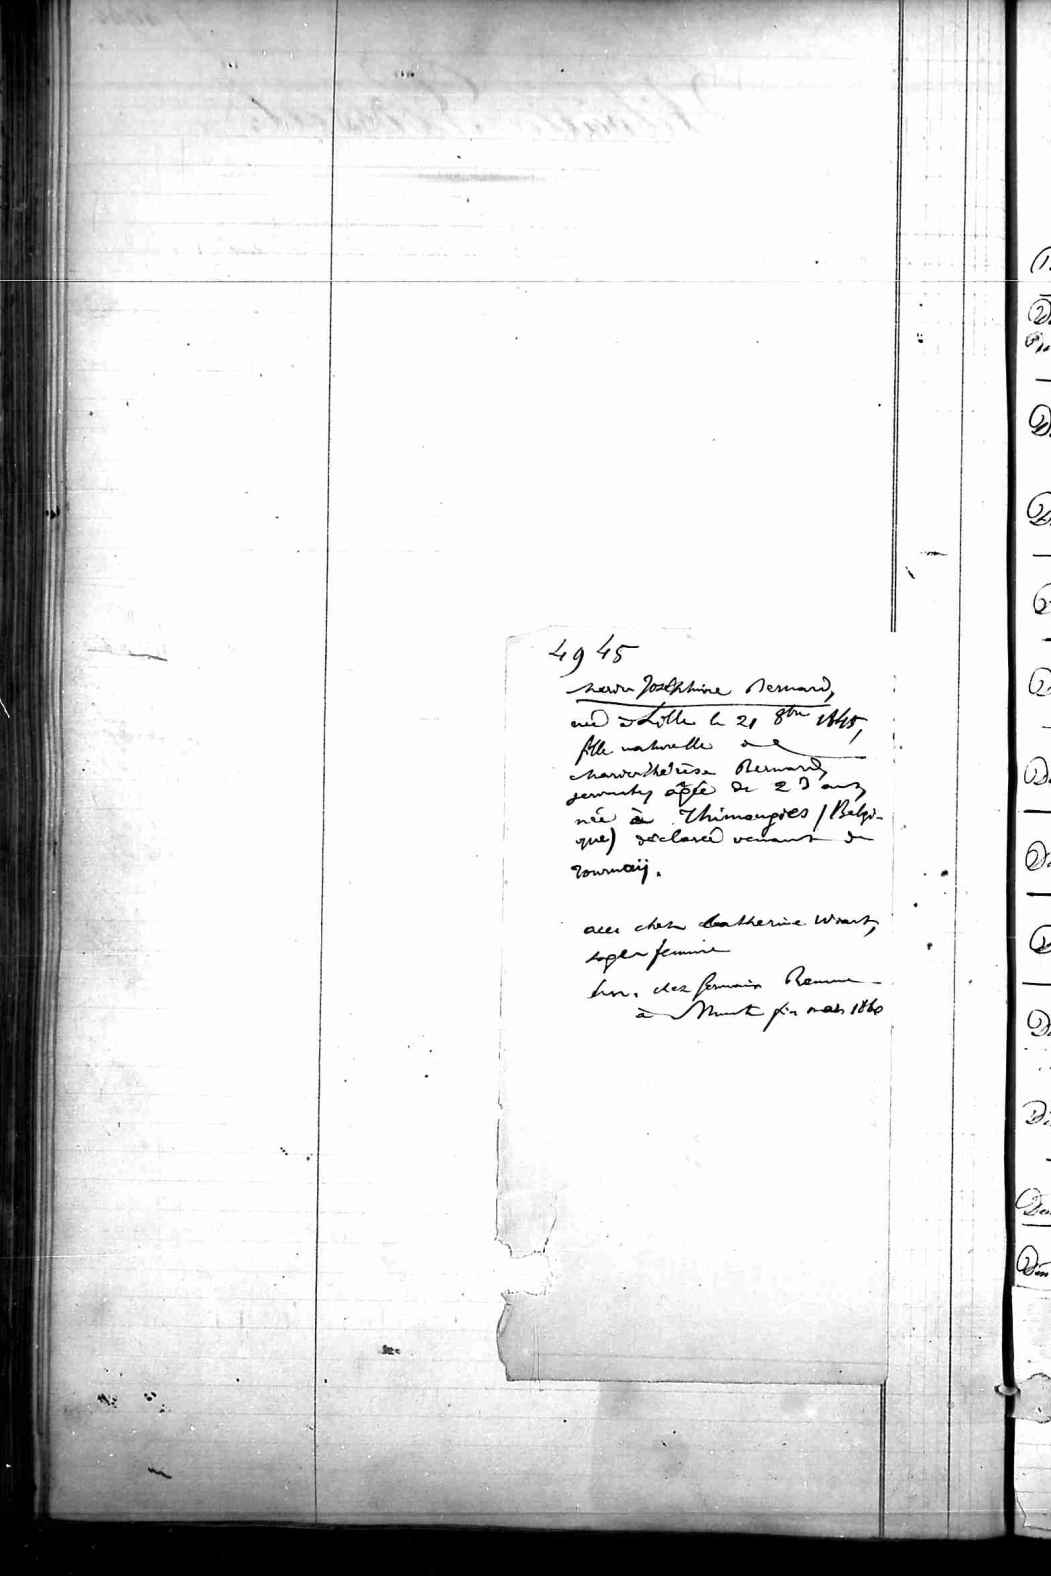 4945
Marie Joséphine Bernard,
née à Lille le 21 8bre 1845,
fille naturelle de
Marie Thérèse Bernard,
servante, âgée de 23 ans,
née à Thimougies (Belgi-
que) déclaré venant de
Tournaij.
acc. chez Catherine Wiart,
sage femme
chez Germain
à fin mars 1860